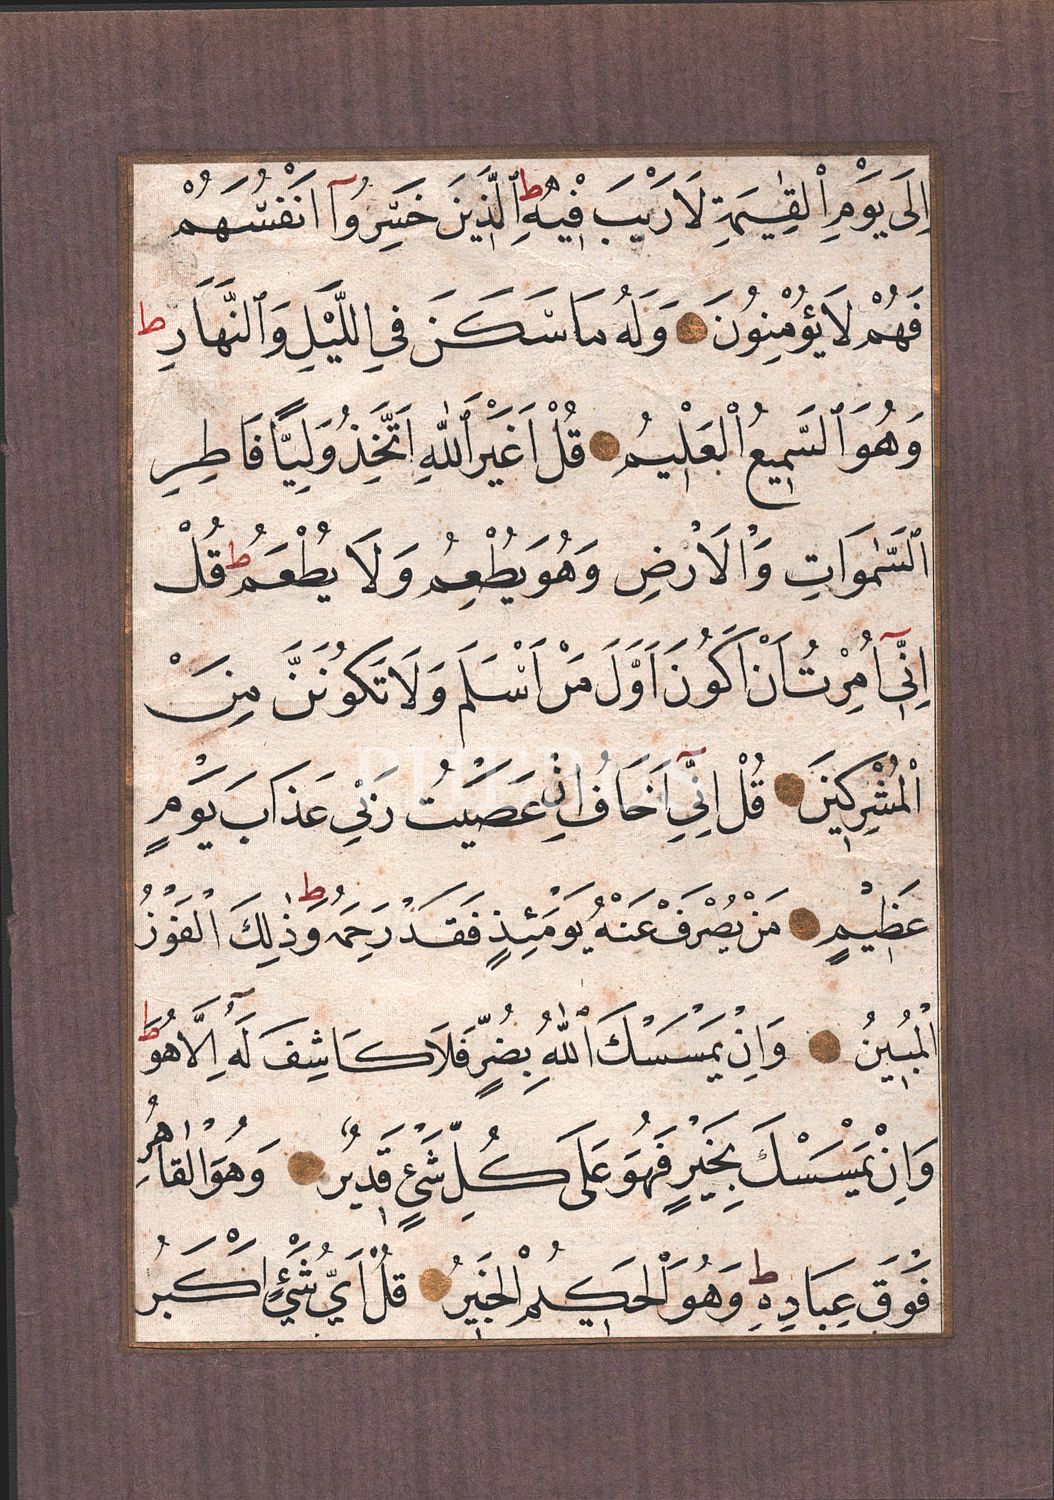 اِلَى يَوْمِ الْقِيٰمَةِ لَا رَيْبَ فِيْهِ ط اَلَّذِينَ خَسِرُوٓا اَنْفُسَهُمْ
فَهُمْ لَا يُؤْمِنُونَ وَلَهُ مَا سَكَنَ فِي اللَّيْلِ وَالنَّهَارِ ط
وَهُوَ السَّمِيعُ الْعَلِيمُ قُلْ اَغَيْرَ اللّٰهِ اَتَّخِذُ وَلِيًّا فَاطِرِ
السَّمٰوَاتِ وَالْاَرْضِ وَهُوَ يُطْعِمُ وَلَا يُطْعَمُ ط قُلْ
اِنِّيٓ اُمِرْتُ اَنْ اَكُونَ اَوَّلَ مَنْ اَسْلَمَ وَلَا تَكُونَنَّ مِنَ
الْمُشْرِكِينَ قُلْ اِنِّيٓ اَخَافُ اِنْ عَصَيْتُ رَبِّي عَذَابَ يَوْمٍ
عَظِيْمٍ مَنْ يُصْرَفْ عَنْهُ يَوْمَئِذٍ فَقَدْ رَحِمَهُ ط وَذٰلِكَ الْفَوْزُ
الْمُبِينُ وَاِنْ يَمْسَسْكَ اللّٰهُ بِضُرٍّ فَلَا كَاشِفَ لَهُٓ اِلَّا هُوَ ط
وَاِنْ يَمْسَسْكَ بِخَيْرٍ فَهُوَ عَلَى كُلِّ شَيْءٍ قَدِيرٌ وَهُوَ الْقَاهِرُ
فَوْقَ عِبَادِهِ ط وَهُوَ الْحَكِيمُ الْخَبِيرُ قُلْ اَيُّ شَيْءٍ اَكْبَرُ